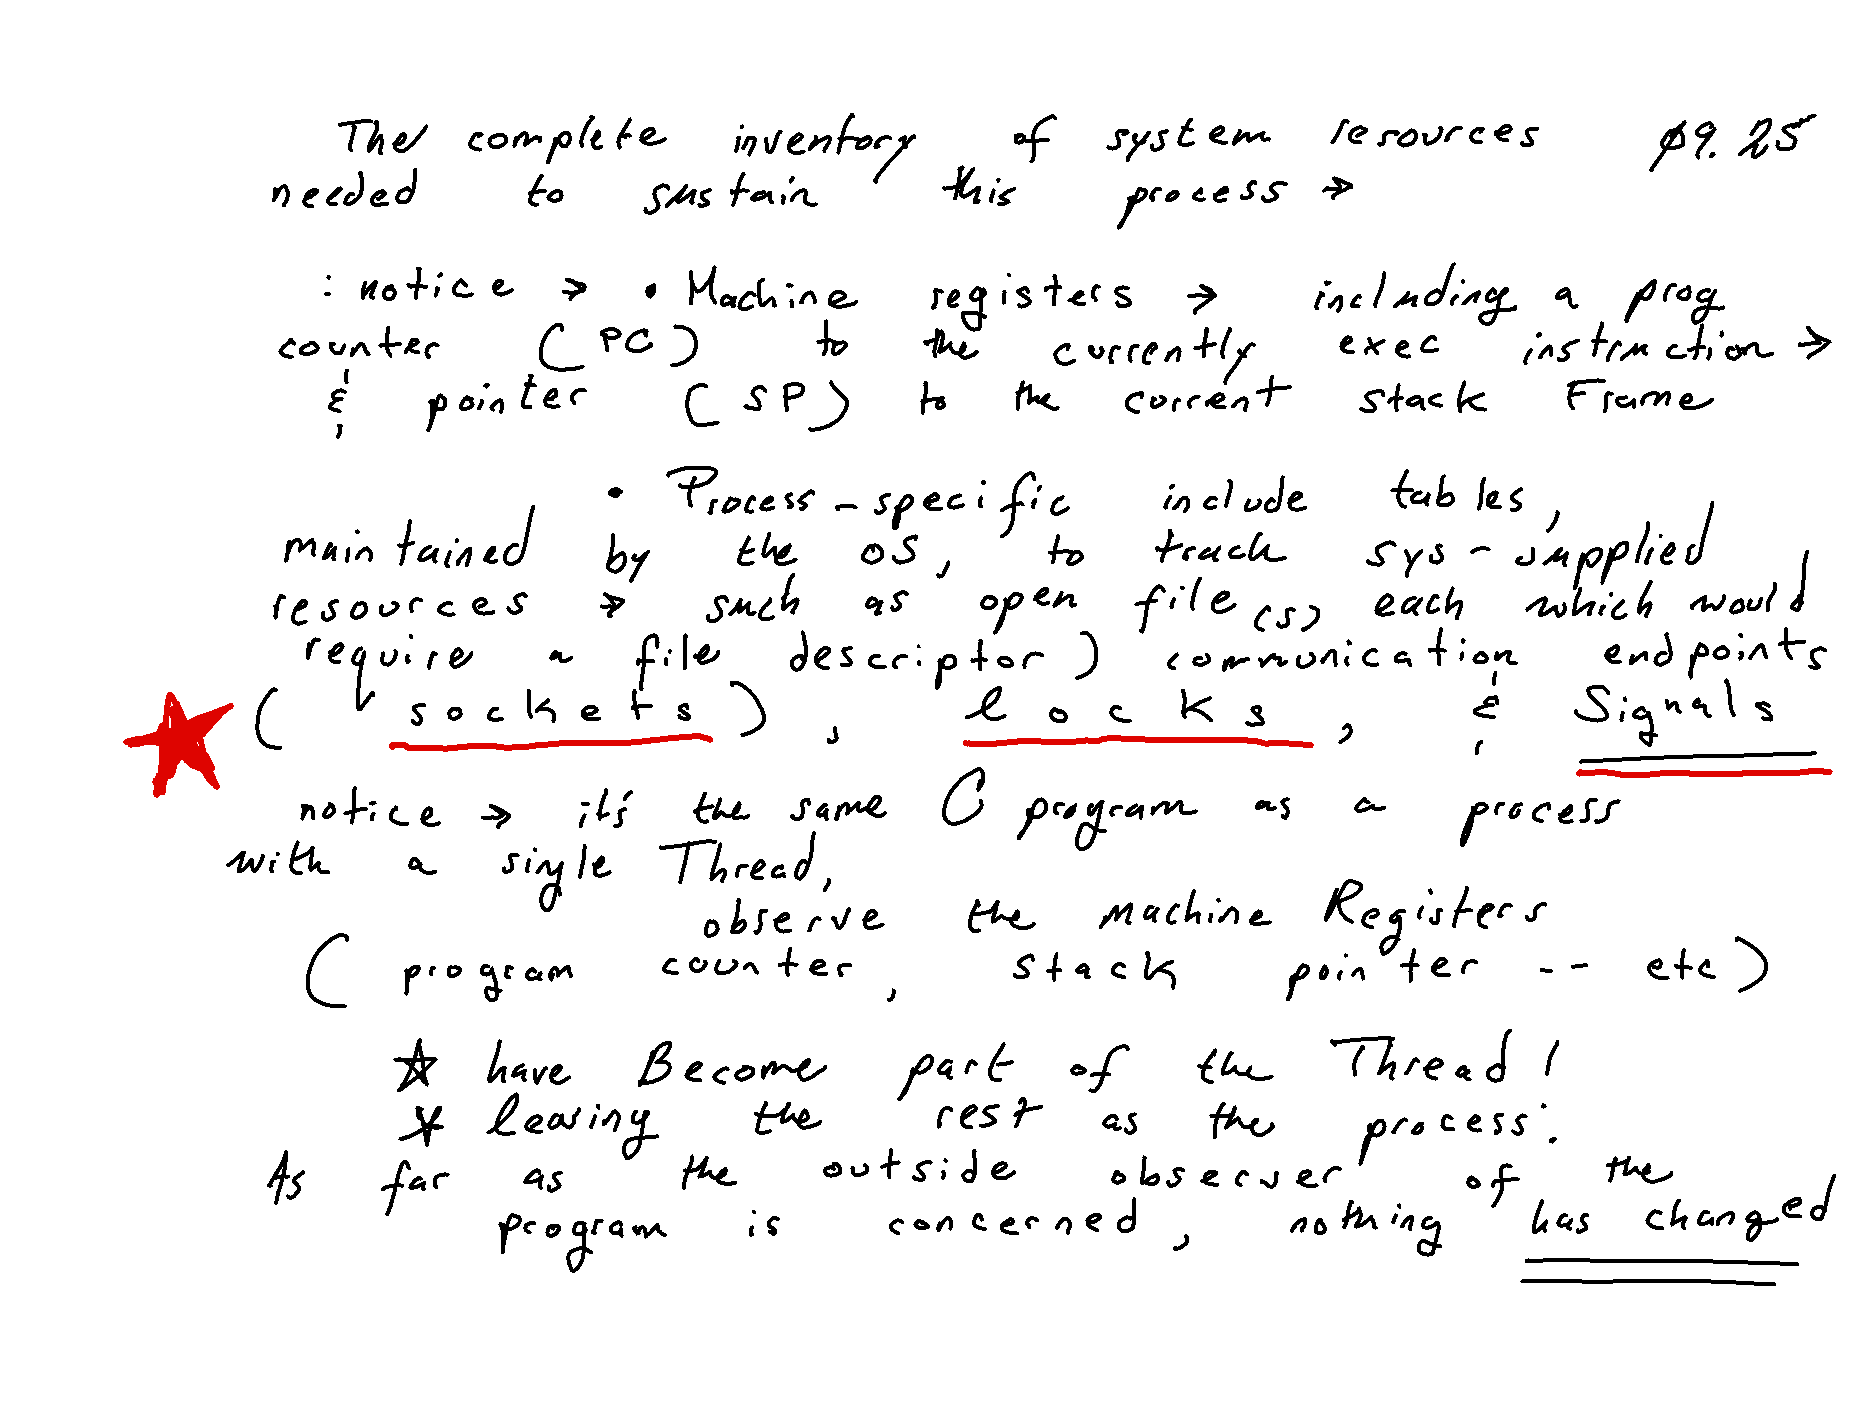 The complete inventory of system resources ø9.25
needed to sustain this process →
: notice → • Machine registers → including a prog
counter (PC) to the currently exec instruction →
& pointer (SP) to the current stack Frame
• Process-specific include tables,
maintained by the OS, to track sys-supplied
resources → such as open file(s) each which would
require a file descriptor) communication endpoints
( sockets), locks, & Signals
notice → it's the same C program as a process
with a single Thread,
observe the Machine Registers
(program counter, stack pointer -- etc)
☆ have Become part of the Thread!
* leaving the rest as the process.
As far as the outside observer of the
program is concerned, nothing has changed